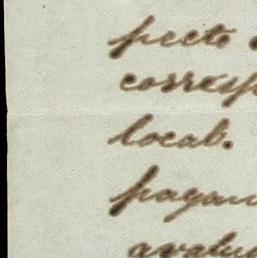 pecto
corresp
local.
pagan
avalu